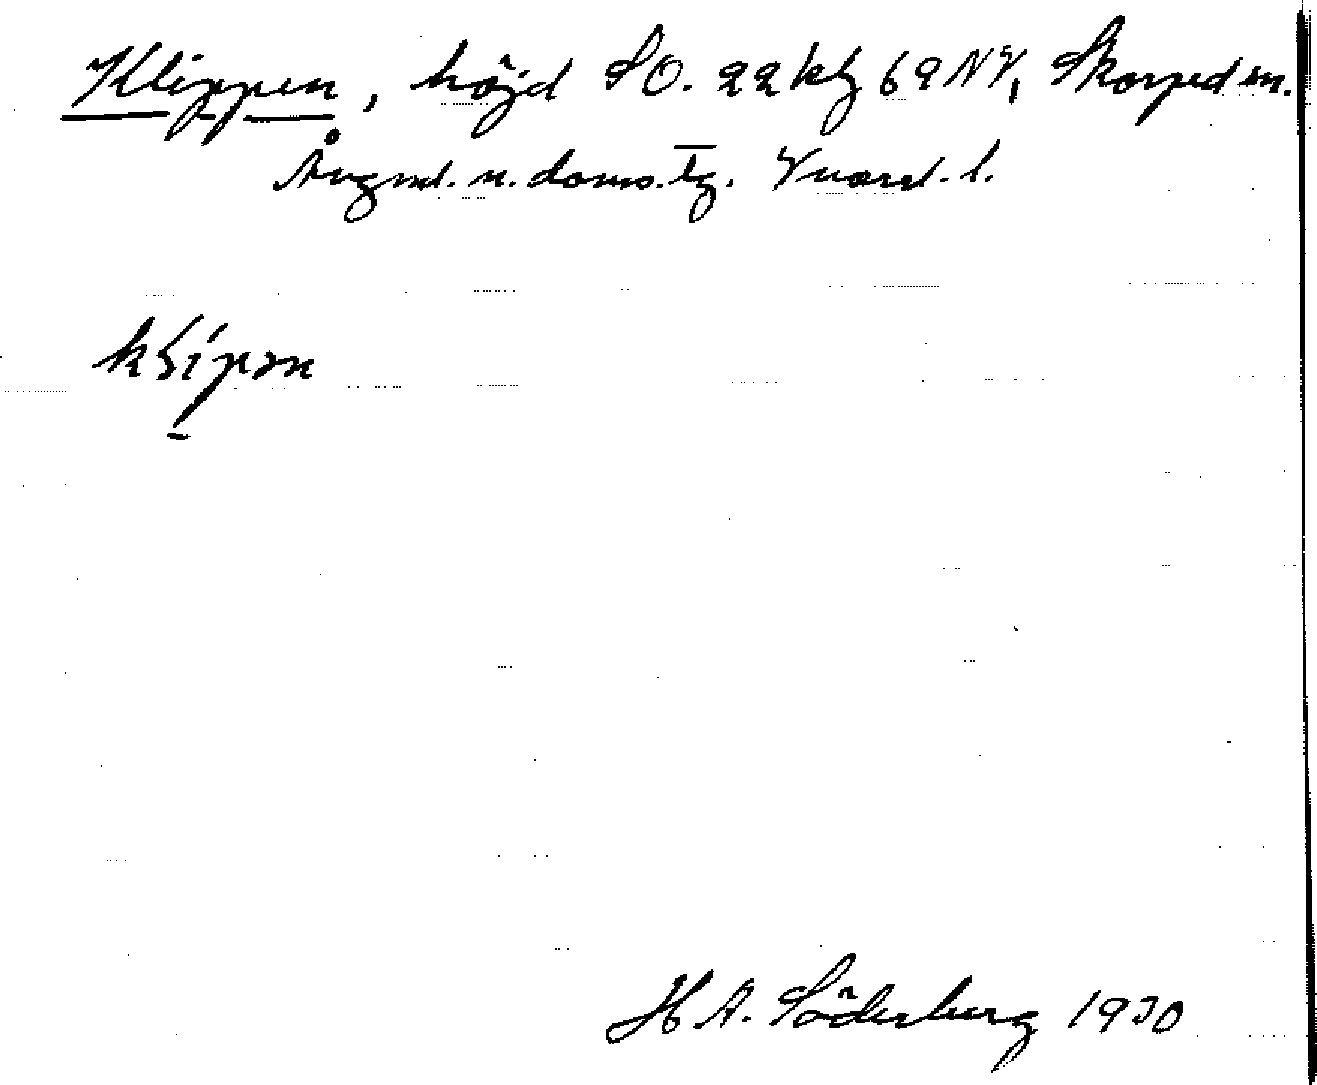 Klippen, höjd SO. 22 kbl 62 NV, Skorped sn.
Ångml. n. doms. tg. Vnorrl. l.
klipən
H A. Söderberg 1930